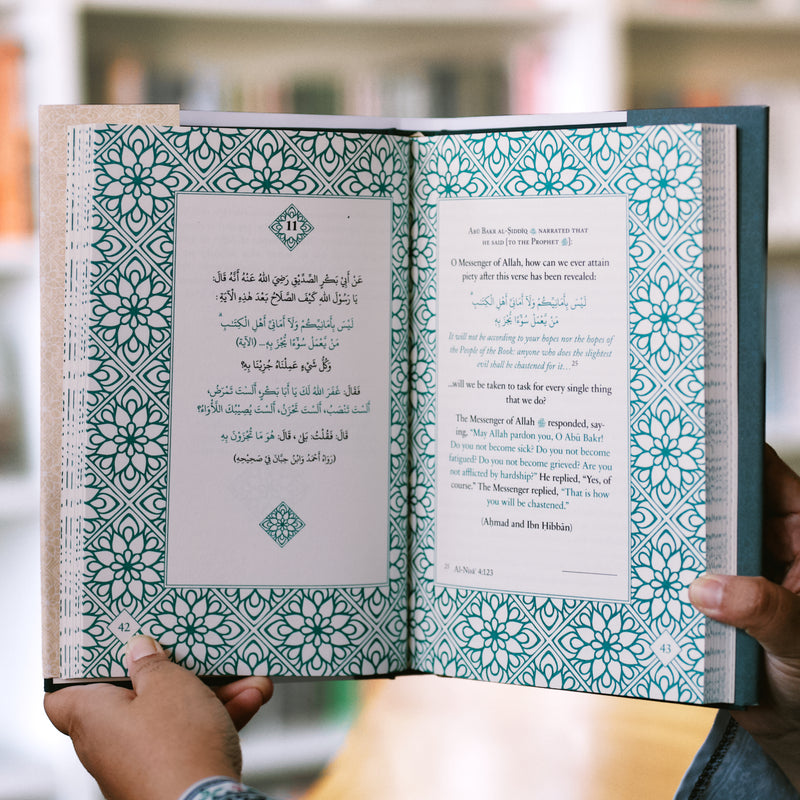 11
عَنْ أَبِي بَكْرٍ الصِّدِّيقِ رَضِيَ اللّٰهُ عَنْهُ أَنَّهُ قَالَ:
يَا رَسُولَ اللّٰهِ كَيْفَ الصَّلَاحُ بَعْدَ هٰذِهِ الْآيَةِ:
لَيْسَ بِأَمَانِيِّكُمْ وَلَآ أَمَانِيِّ أَهْلِ الْكِتَـٰبِ ۗ
مَنْ يَعْمَلْ سُوٓءًا يُجْزَ بِهِ... (الآية)
وَكُلُّ شَيْءٍ عَمِلْنَاهُ جُزِينَا بِهِ؟
فَقَالَ: غَفَرَ اللّٰهُ لَكَ يَا أَبَا بَكْرٍ، أَلَسْتَ تَمْرَضُ،
أَلَسْتَ تَنْصَبُ، أَلَسْتَ تَحْزَنُ، أَلَسْتَ يُصِيبُكَ اللَّأْوَاءُ؟
قَالَ: فَقُلْتُ: بَلَى، قَالَ: هُوَ مَا تُجْزَوْنَ بِهِ
(رَوَاهُ أَحْمَدُ وَابْنُ حِبَّانَ فِي صَحِيحِهِ)
42
Abū Bakr al-Ṣiddīq ﷺ narrated that
he said [to the Prophet ﷺ]:
O Messenger of Allah, how can we ever attain
piety after this verse has been revealed:
لَيْسَ بِأَمَانِيِّكُمْ وَلَآ أَمَانِيِّ أَهْلِ الْكِتَـٰبِ ۗ
مَنْ يَعْمَلْ سُوٓءًا يُجْزَ بِهِ
It will not be according to your hopes nor the hopes of
the People of the Book: anyone who does the slightest
evil shall be chastened for it…25
...will we be taken to task for every single thing
that we do?
The Messenger of Allah ﷺ responded, say-
ing, “May Allah pardon you, O Abū Bakr!
Do you not become sick? Do you not become
fatigued? Do you not become grieved? Are you
not afflicted by hardship?” He replied, “Yes, of
course.” The Messenger replied, “That is how
you will be chastened.”
(Aḥmad and Ibn Ḥibbān)
25 Al-Nisāʾ 4:123
43